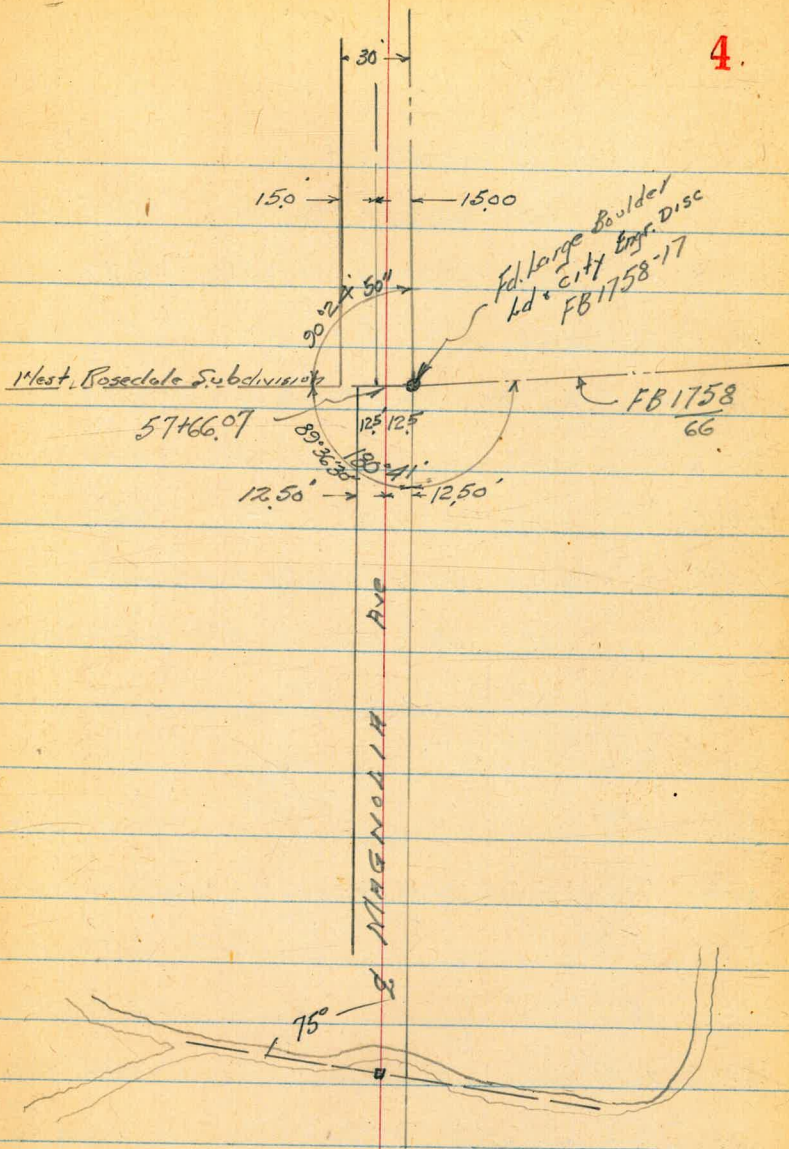 4.
30'
15.0
15.00
Fd. Large Boulder
Ld & City Engr. Disc
FB 1758-17
West Rosedale Subdivision
57+66.07
12.5' 12.5'
FB 1758
66
89°36'30"
180°41'
12.50'
12.50'
℄ MAGNOLIA Ave
75°